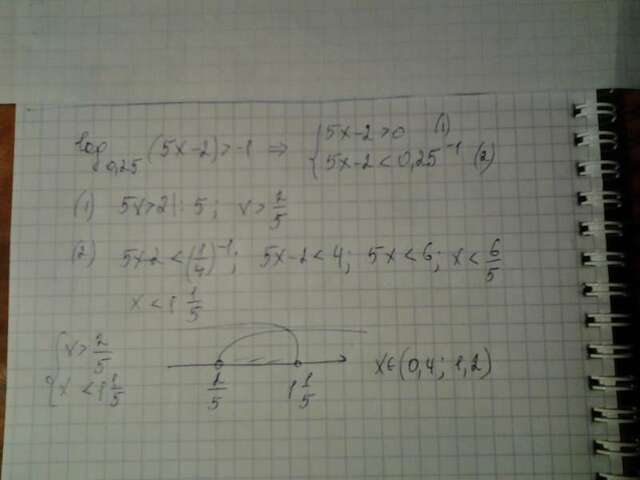 log₀,₂₅(5x-2)>-1 ⇒ { 5x-2>0 (1)
{ 5x-2<0,25⁻¹ (2)
(1) 5x>2 |:5; x>2/5
(2) 5x-2<(1/4)⁻¹; 5x-2<4; 5x<6; x<6/5
x<1 1/5
{ x>2/5
{ x<1 1/5
2/5 1 1/5 x∈(0,4; 1,2)